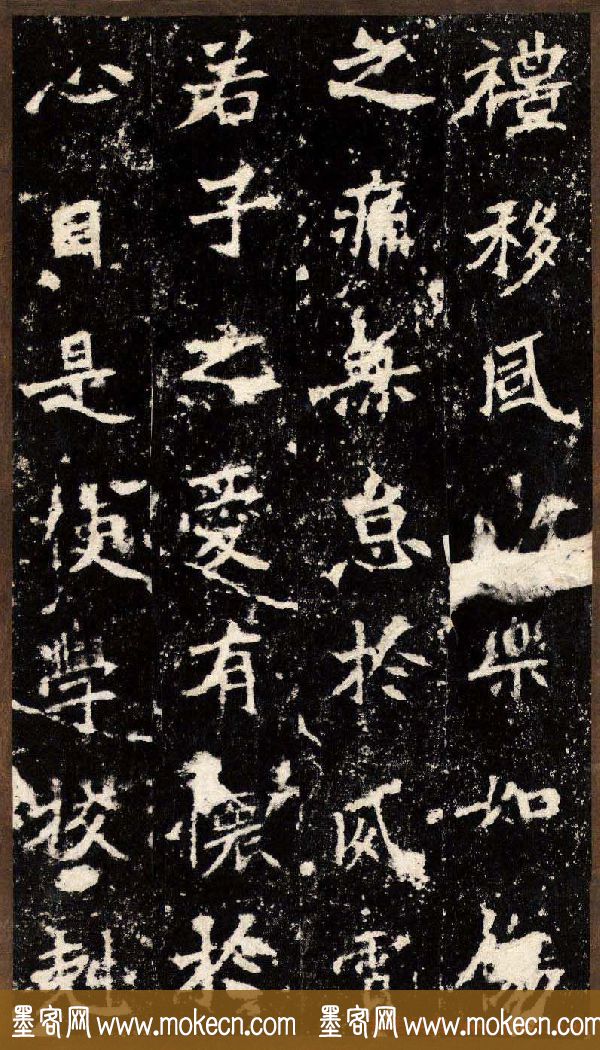 禮移風以樂如傷
之痛無怠於夙
若子之愛有懷於
心目是使學校剋
墨客网 www.mokecn.com 墨客网 www.mokecn.com